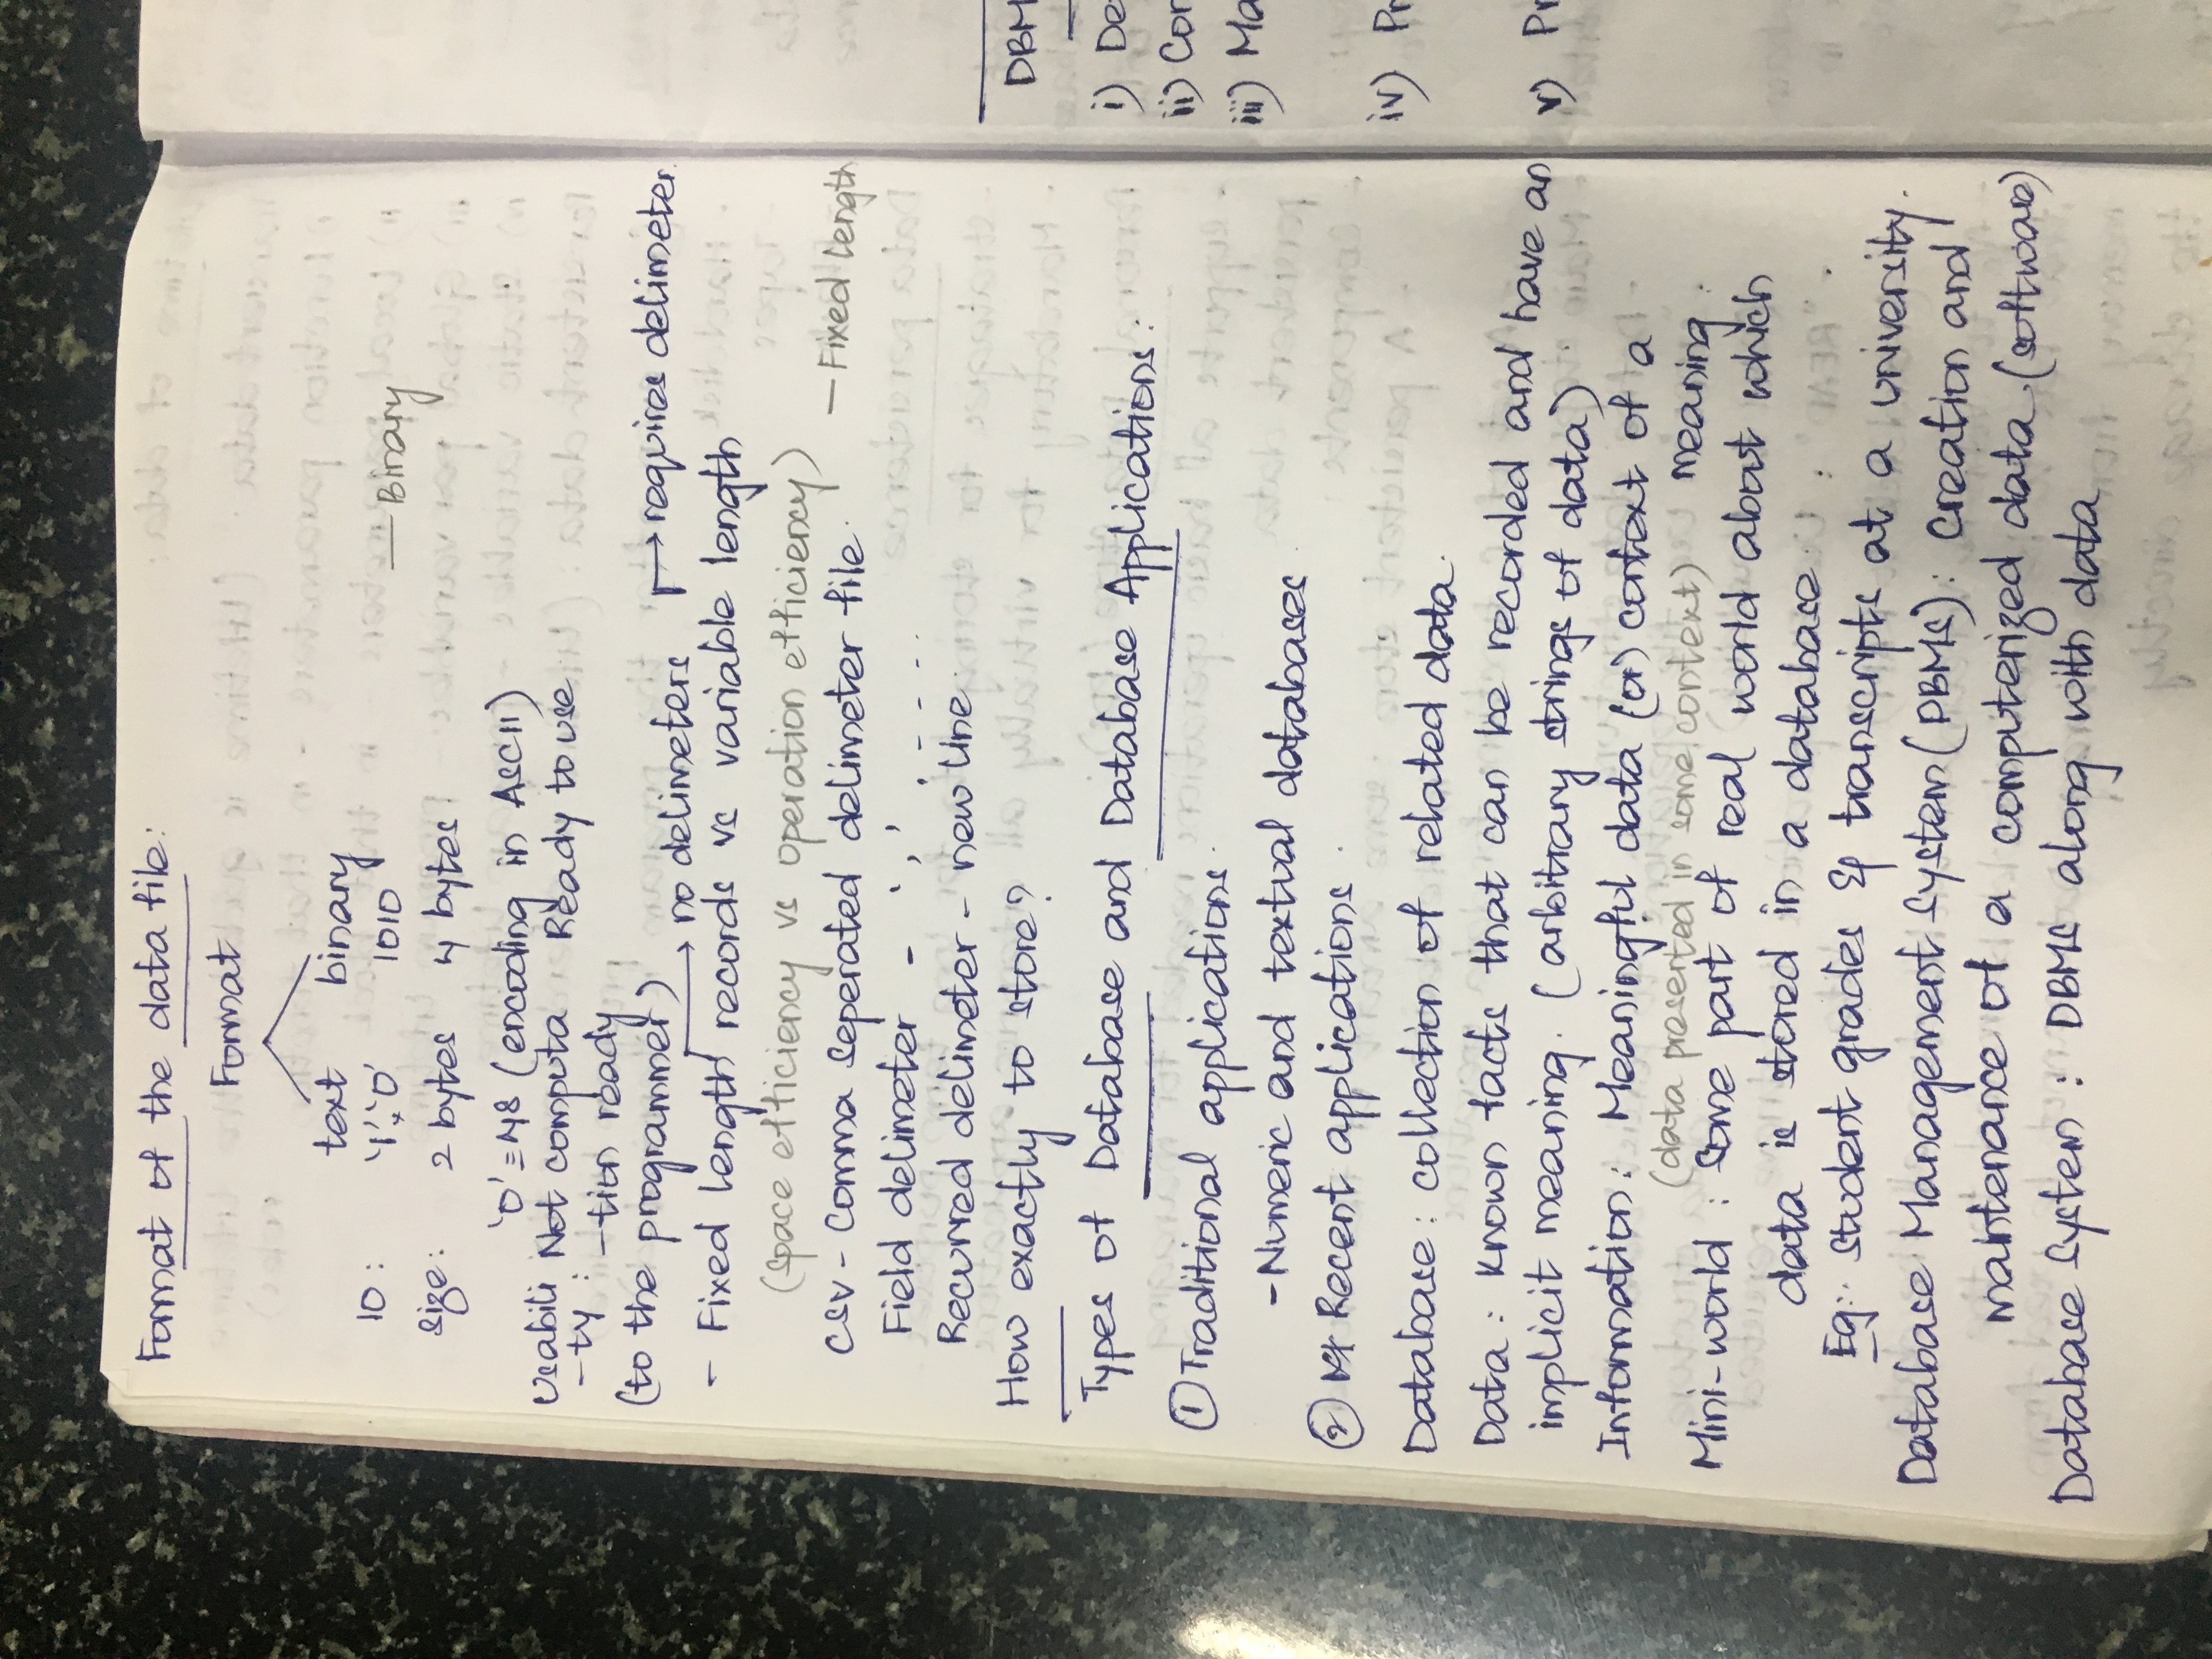 Format of the data file:
Format
text binary
10 : '1','0' 1010
— Binary
size: 2 bytes 4 bytes
'0' ≡ 48 (encoding in ASCII)
Usabili Not computa Ready to use
-ty : -tion ready
(to the programmer)
→ no delimeters → requires delimeter
- Fixed length records vs variable length
(space efficiency vs operation efficiency)
— Fixed length
CSV - Comma seperated delimeter file.
Field delimeter - ',' . - - - -
Recurred delimeter - new line.
How exactly to store?
Types of Database and Database Applications:
① Traditional applications.
- Numeric and textual databases
② Recent applications.
Database: collection of related data.
Data: Known facts that can be recorded and have an
implicit meaning. (arbitrary strings of data)
Information: Meaningful data (or) context of a
meaning.
(data presented in some context)
Mini-world : Some part of real world about which
data is stored in a database.
Eg: student grades & transcripts at a university.
Database Management System (DBMS): Creation and
maintenance of a computerized data. (software)
Database System : DBMS along with data
DBM
i) De
ii) Cor
iii) Ma
iv) Pr
v) Pr